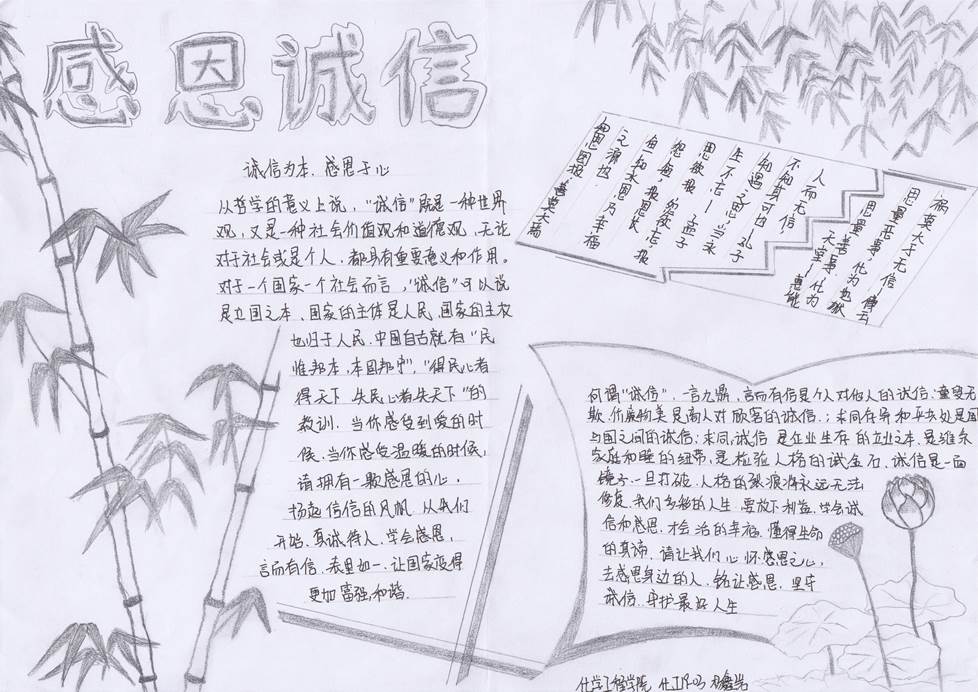 感恩诚信
诚信为本、感恩于心
从哲学的意义上说，“诚信”既是一种世界
观，又是一种社会价值观和道德观，无论
对于社会或是个人，都具有重要意义和作用。
对于一个国家一个社会而言，“诚信”可以说
是立国之本、国家的主体是人民，国家的主权
也归于人民、中国自古就有“民
惟邦本，本固邦宁”，“得民心者
得天下 失民心者失天下”的
教训，当你感受到爱的时
候、当你感受温暖的时候，
请拥有一颗感恩的心，
扬起信信的风帆 从我们
开始、真诚待人、学会感恩，
言而有信、表里如一、让国家变得
更加富强，和谐.
祸莫大于无信—傅云
思量恶事，化为地狱
思量善事，化为
天堂—惠能
人而无信，
不知其可也—孔子
知遇之恩，当永
生不忘—孟子
恩欲报
怨欲忘，报
之源投
知恩图报，善莫大焉
何谓“诚信”，一言九鼎，言而有信是个人对他人的诚信；童叟无
欺、价廉物美是商人对顾客的诚信；求同存异和平共处是国
与国之间的诚信；求同，诚信 是企业生存的立业之本、是维系
家庭和睦的纽带，是检验人格的试金石、诚信是一面
镜子、一旦打破、人格的 将永远无法
修复、我们 的人生 要放下利益、学会诚
信和感恩、才会活的幸福、懂得生命
的真谛、请让我们心怀感恩之心，
去感恩身边的人、铭让感恩、坚守
诚信、守护最好人生
化学工程学院